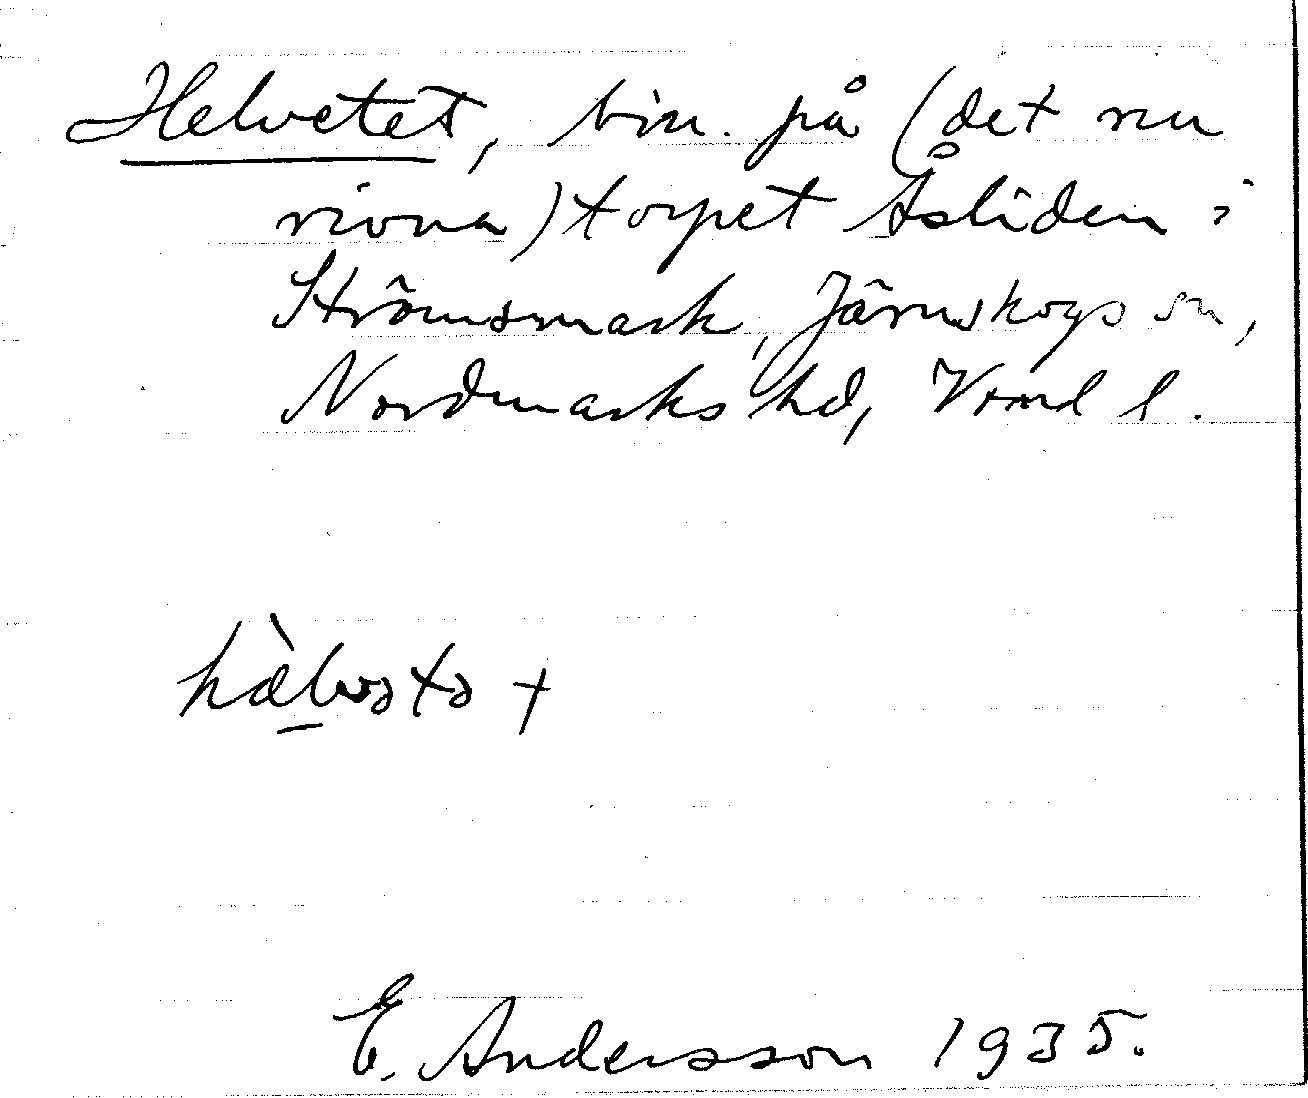 Helvetet, bin. på (det nu
rivna) torpet Åsliden i
Strömsmark, Järnskogs sn,
Nordmarks hd, Vrml l.
hæ̀lvətə +
E. Andersson 1935.